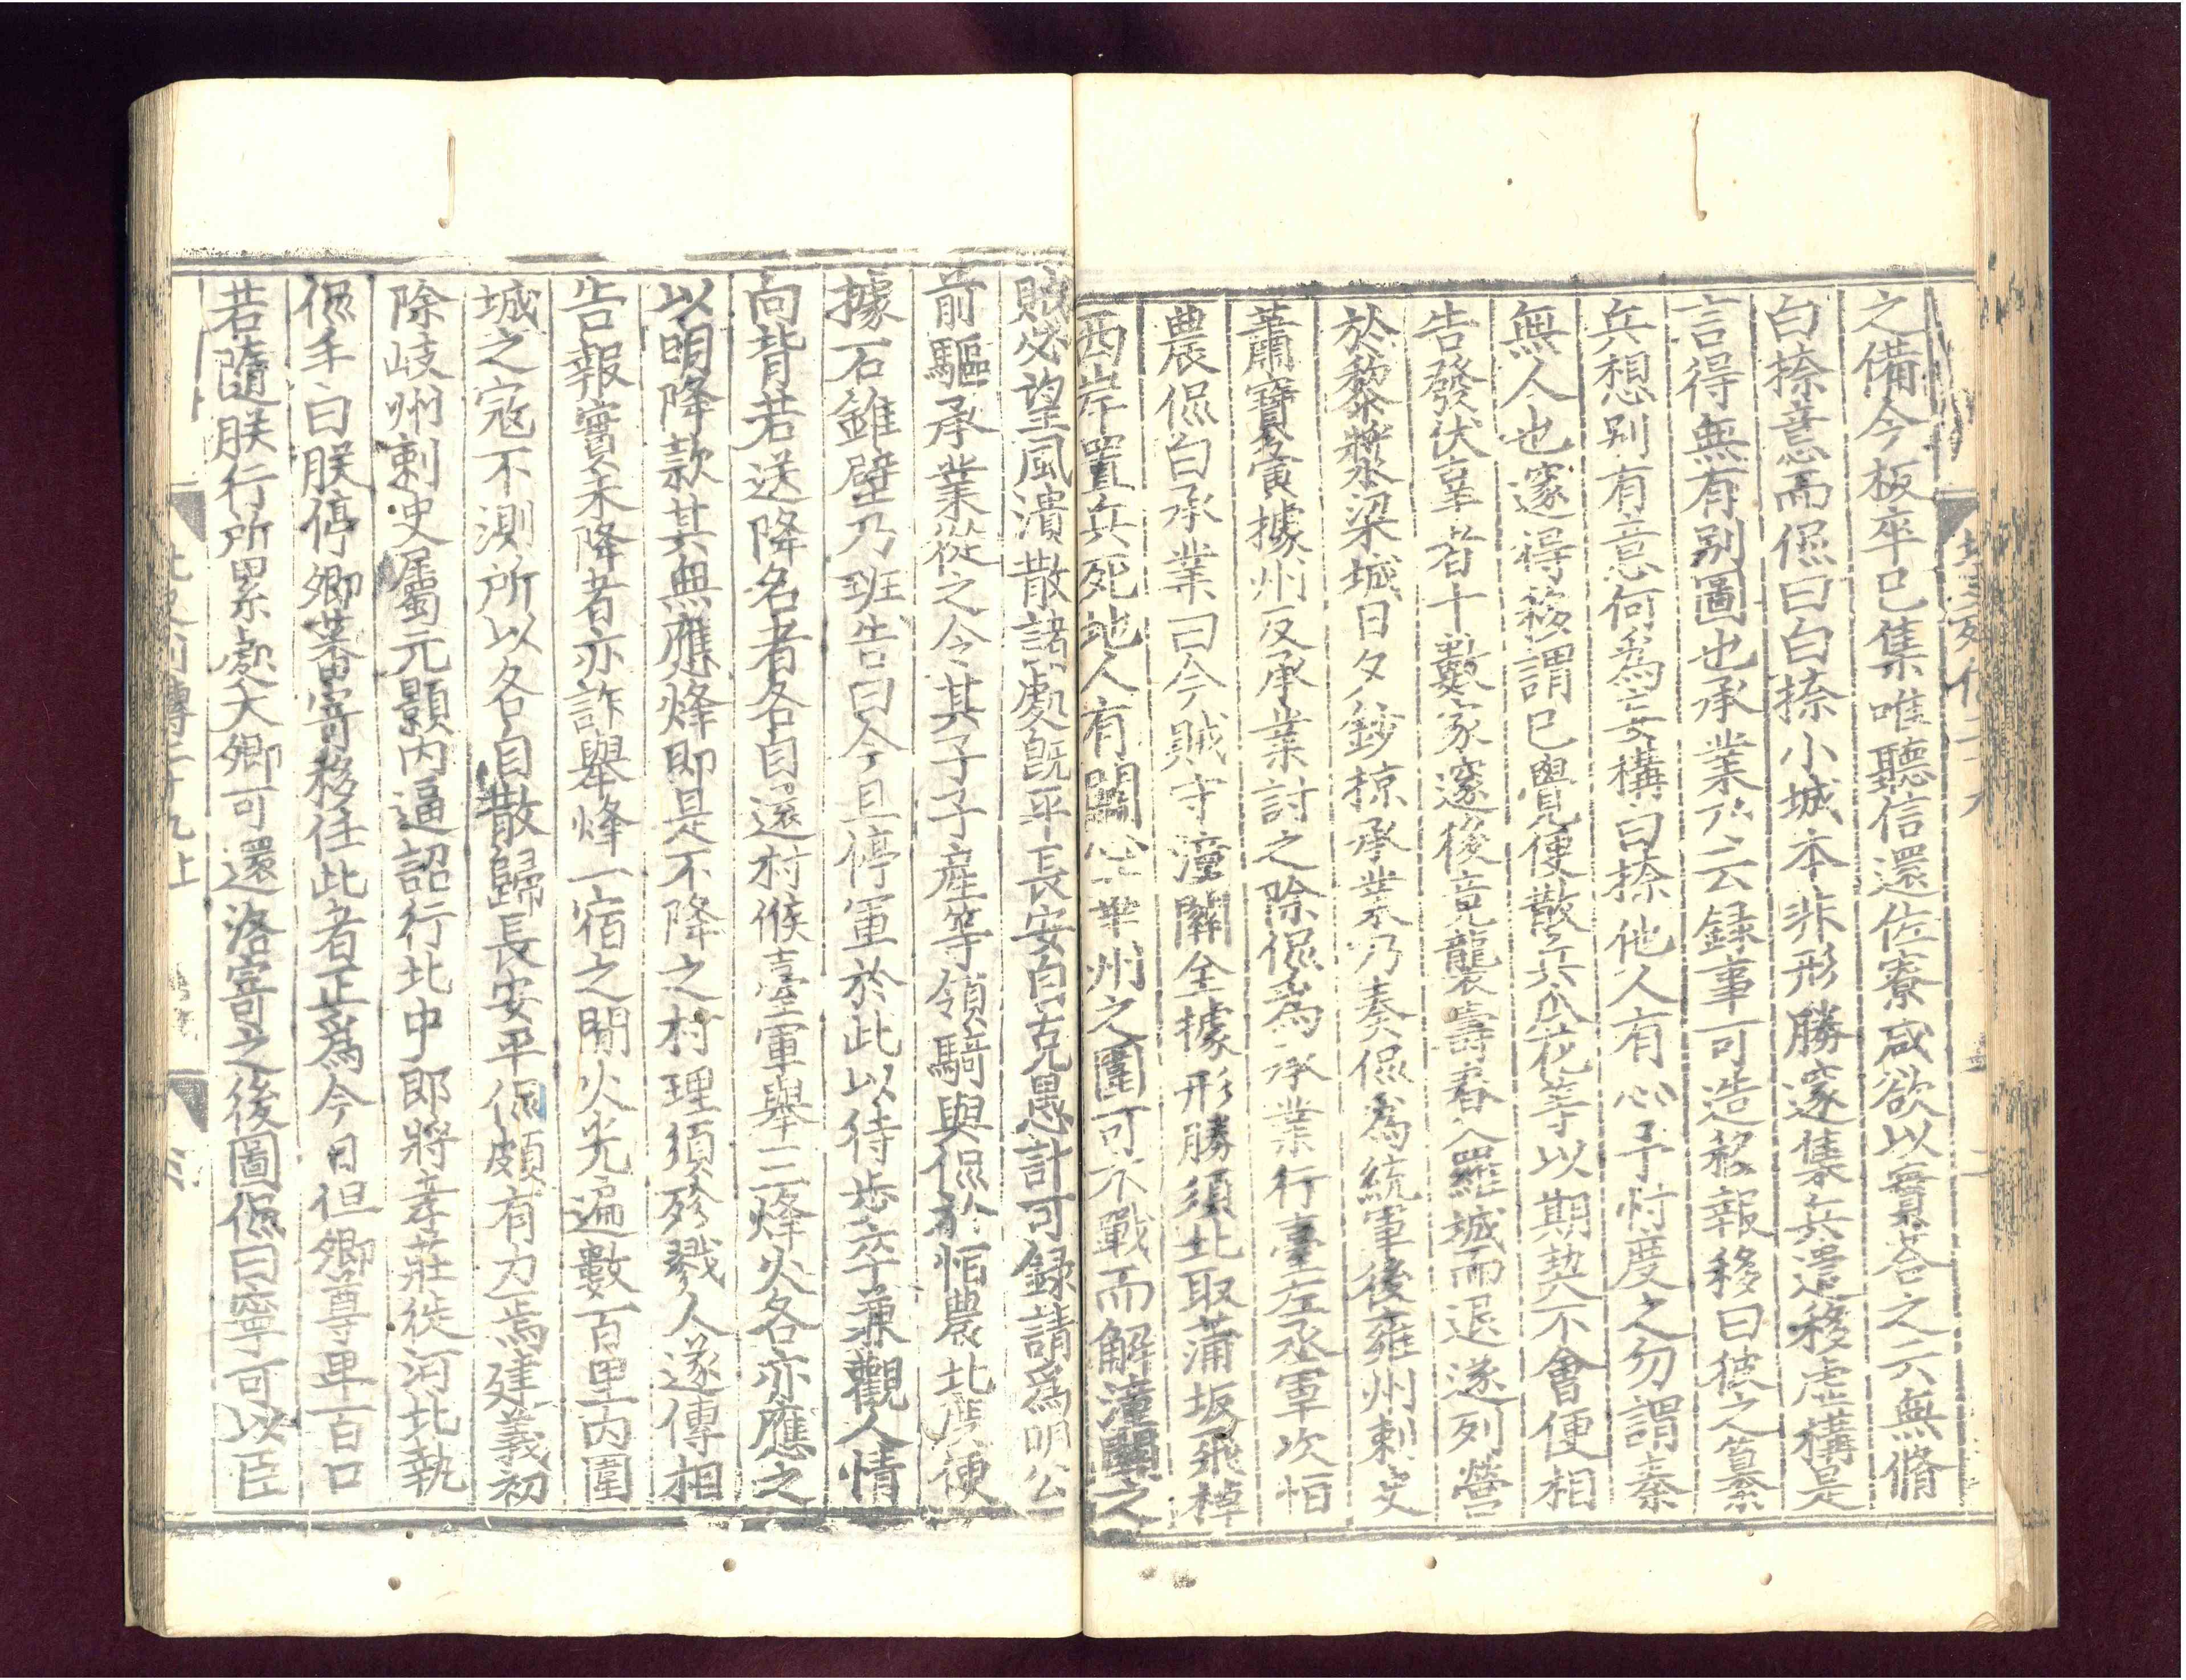 之備今板卒已集唯聽信還佐寮咸欲以實荅之云無脩
白捺意而偘曰白捺小城本非形勝遂集兵遣移虛構是
言得無有别圖也承業乃云録事可造移報移曰彼之篡
兵想别有意何爲妄構白捺他人有心予忖度之勿謂秦
無人也邃得移謂已覺便散兵瓜花等以期契不會便相
告發伏辜者十數家邃後竟襲壽春入羅城而退遂列營
於黎漿梁城日夕鈔掠承業乃奏偘爲統軍後雍州刺史
蕭寶寅據州反承業討之除偘爲承業行臺左丞軍次恒
農偘白承業曰今賊守潼關全據形勝須北取蒲坂飛棹
西岸置兵死地人有鬭心華州之圍可不戰而解潼關之
賊必望風潰散諸處既平長安自克愚計可録請爲明公
前驅承業從之令其子子産等領騎與偘於恒農北度便
據石錐壁乃班告曰今且停軍於此以待步卒兼觀人情
向背若送降名者各自還村候臺軍舉三烽火各亦應之
以明降款其無應烽即是不降之村理須殄戮人遂傳相
告報實未降者亦詐舉烽一宿之閒火光遍數百里内圍
城之寇不測所以各自散歸長安平偘頗有力焉建義初
除岐州刺史屬元顥内逼詔行北中郎將孝莊徙河北執
偘手曰朕停卿蕃寄移任此者正爲今日但卿尊卑百口
若隨朕行所累處大卿可還洛寄之後圖偘曰寧可以臣
北史列傳二十九上